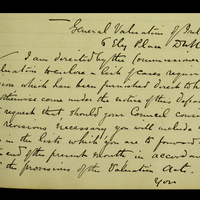 General Valuation of
6 Ely Place Dubl
I am directed by the Commissioner
Valuation to enclose a list of cases
which has been furnished direct to h
otherwise come under the notice of this Depar
request that, should your Council cons
revisions necessary you will include
in the lists which you are to forward
end of the present month, in accordan
the provisions of the Valuation Acts.
You